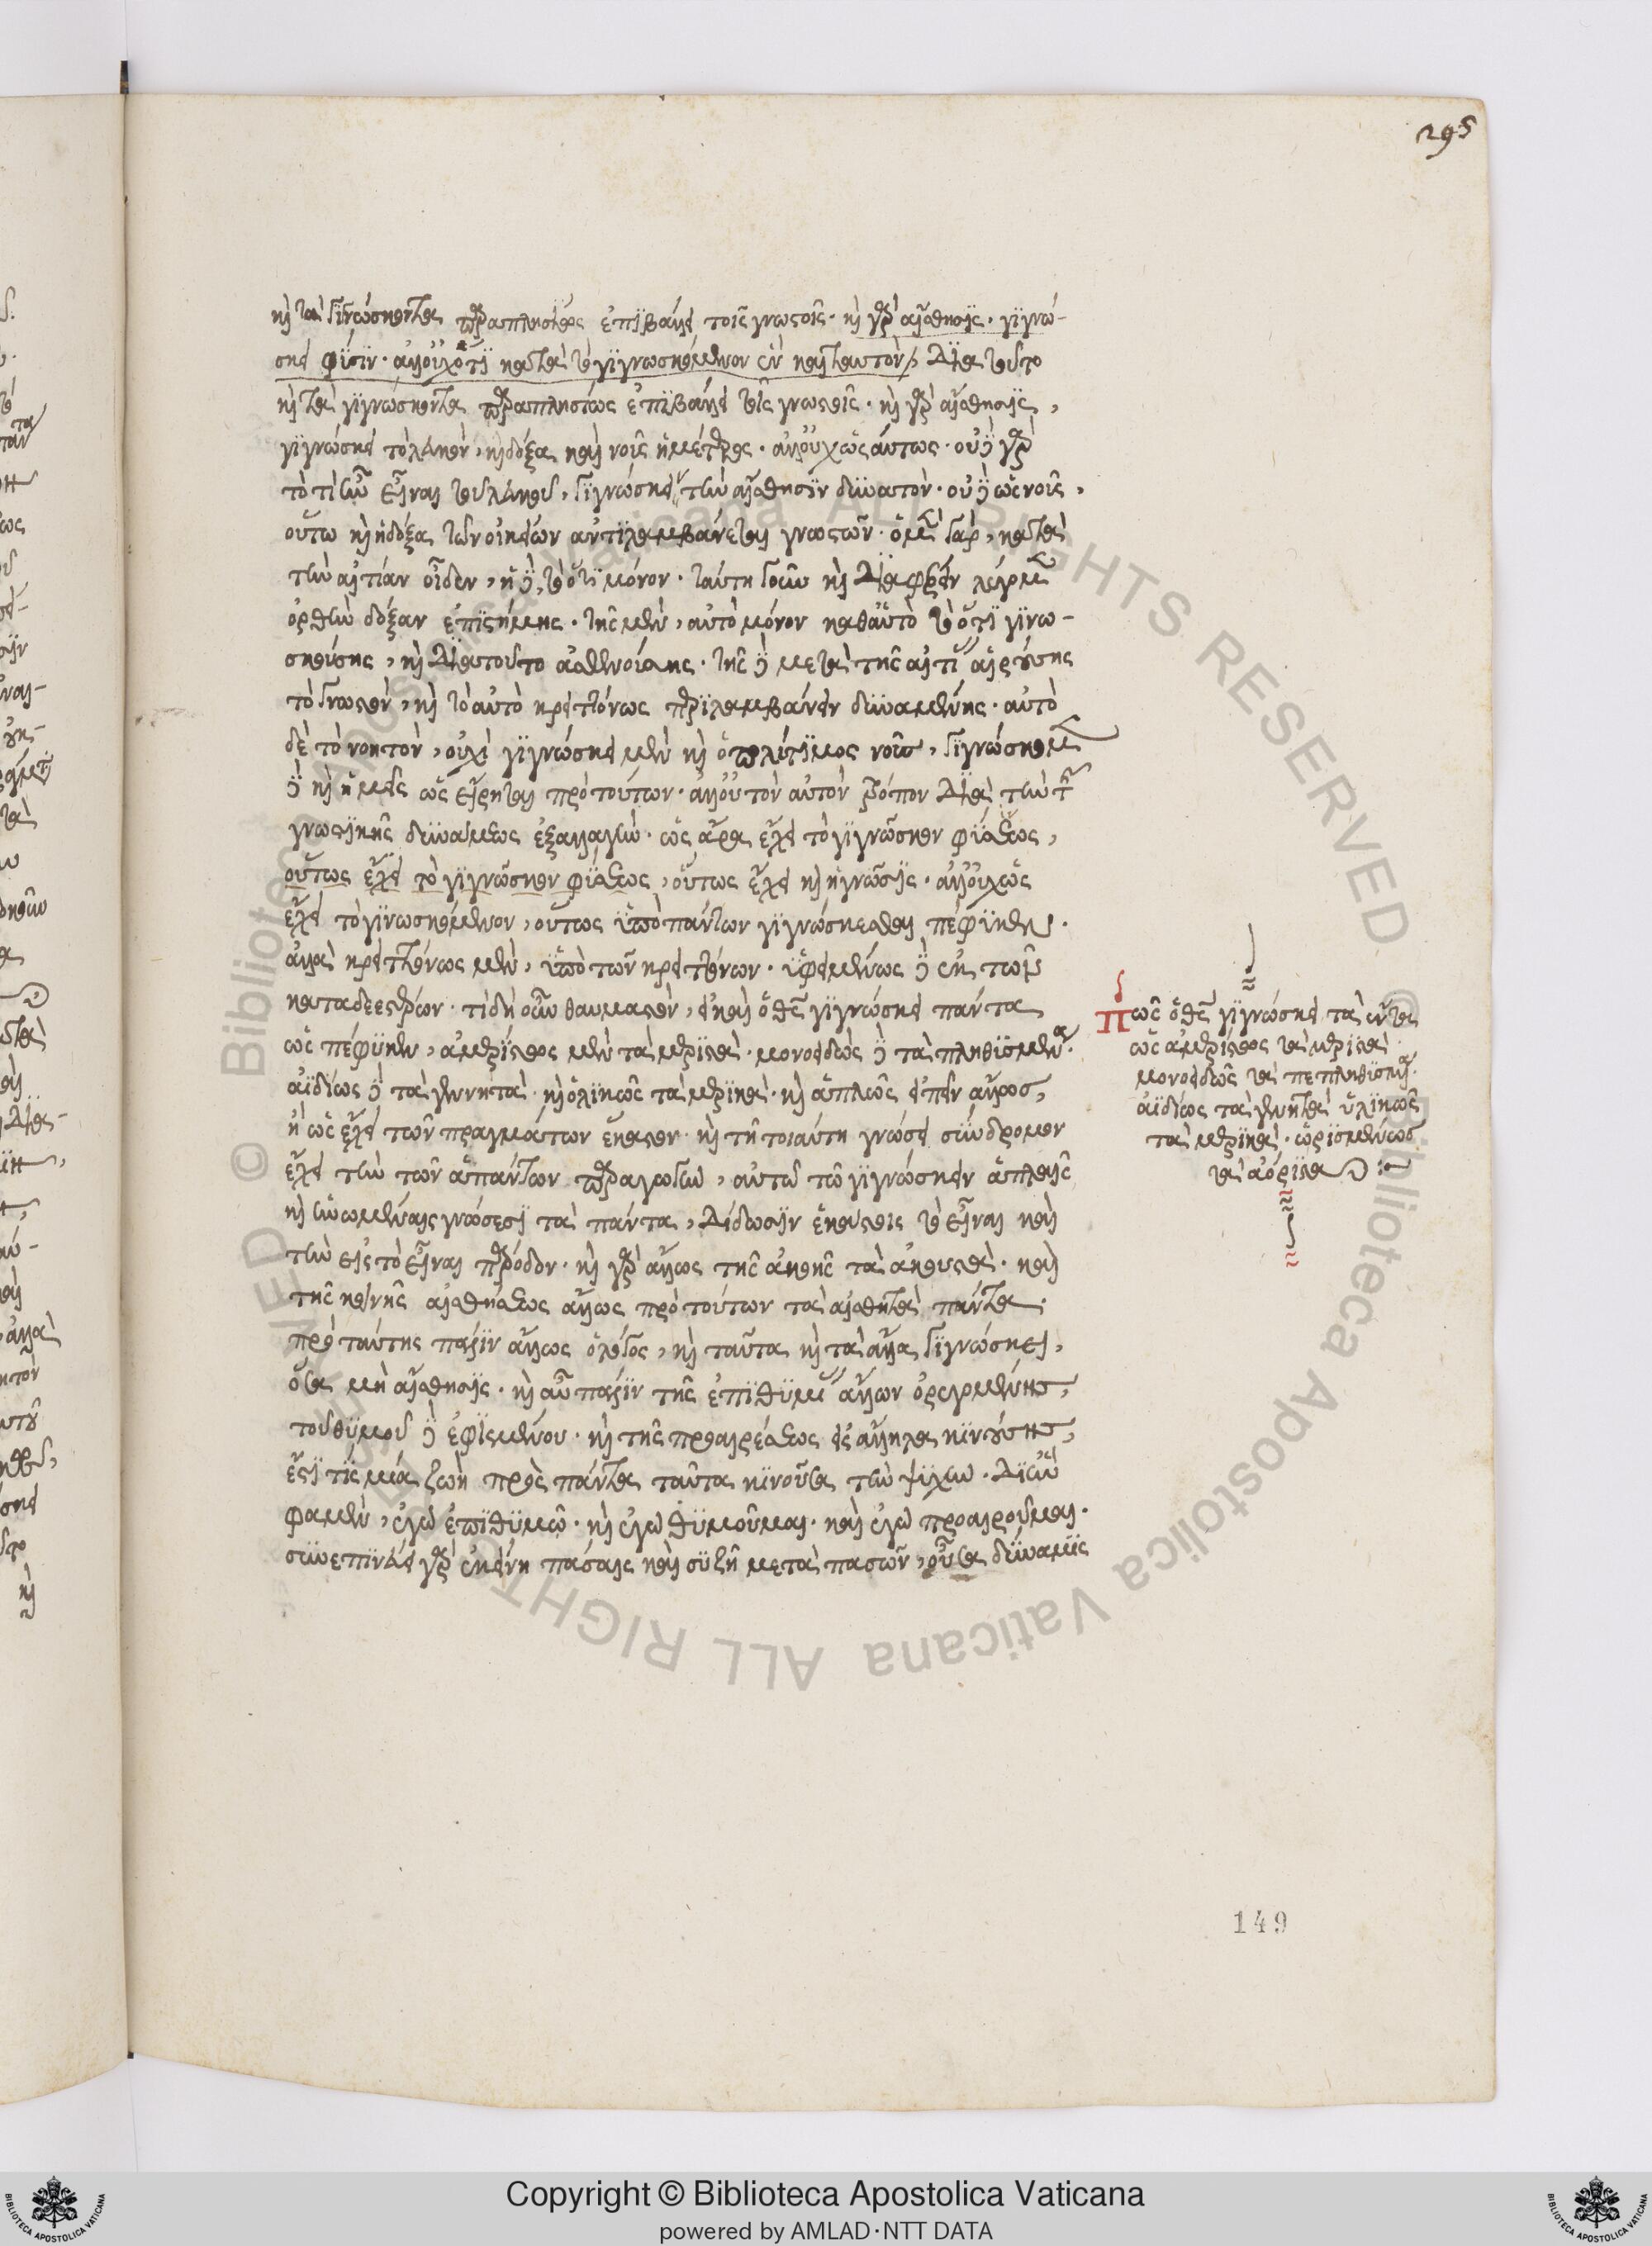 295
καὶ τὰ γινώσκοντα παραπλησίως ἐπιβάλλει τοῖς γνωστοῖς· καὶ γὰρ αἴσθησις, γιγνώ-
σκει φύσιν· ἀλλ' οὐχ ὅτι κατὰ τὸ γιγνωσκόμενον ἓν καὶ ταυτόν, διὰ τοῦτο
καὶ τὰ γιγνώσκοντα παραπλησίως ἐπιβάλλει τοῖς γνωστοῖς· καὶ γὰρ αἴσθησις,
γιγνώσκει τὸ λευκόν, καὶ δόξα καὶ νοῦς ἡμέτερος· ἀλλ' οὐχ ὡσαύτως· οὐδὲ γὰρ
τὸ τί ἦν εἶναι τοῦ λευκοῦ, γιγνώσκειν τὴν αἴσθησιν δυνατόν· οὐδὲ ὡς νοῦς,
οὕτω καὶ ἡ δόξα τῶν οἰκείων ἀντιλαμβάνεται γνωστῶν· ὁ μὲν γὰρ, κατὰ
τὴν αἰτίαν οἶδεν, ἡ δὲ, τὸ ὅτι μόνον· ταύτῃ γοῦν καὶ διαφέρειν λέγομεν
ὀρθὴν δόξαν ἐπιστήμης· τῆς μὲν, αὐτὸ μόνον καθ' αὑτὸ τὸ ὅτι γινω-
σκούσης, καὶ διὰ τοῦτο ἀσθενούσης· τῆς δὲ μετὰ τῆς αἰτίας αἱρούσης
τὸ γνωστόν, καὶ τὸ αὐτὸ κρειττόνως περιλαμβάνειν δυναμένης· αὐτὸ
δὲ τὸ νοητόν, οὐχὶ γιγνώσκει μὲν καὶ ὁ πολύτιμος νοῦς, γιγνώσκομεν
δὲ καὶ ἡμεῖς ὡς εἴρηται πρὸ τούτων· ἀλλ' οὐ τὸν αὐτὸν τρόπον διὰ τὴν τῆς
γνωστικῆς δυνάμεως ἐξαλλαγήν· ὡς ἄρα ἔχει τὸ γιγνῶσκον φύσεως,
οὕτως ἔχει τὸ γιγνῶσκον φύσεως, οὕτως ἔχει καὶ ἡ γνῶσις· ἀλλ' οὐχ ὡς
ἔχει τὸ γινωσκόμενον, οὕτως ὑπὸ πάντων γιγνώσκεσθαι πέφυκεν·
ἀλλὰ κρειττόνως μὲν, ὑπὸ τῶν κρειττόνων· ὑφειμένως δὲ ἐκ τῶν
καταδεεστέρων· τί δὴ οὖν θαυμαστόν, εἰ καὶ ὁ θεὸς γιγνώσκει πάντα
ὡς πέφυκεν, ἀμερίστως μὲν τὰ μεριστὰ· μονοειδῶς δὲ τὰ πληθυσμένα·
ἀϊδίως δὲ τὰ γεννητὰ· καὶ ὁλικῶς τὰ μερικὰ· καὶ ἁπλῶς εἰπεῖν ἄλλως,
ἢ ὡς ἔχει τῶν πραγμάτων ἕκαστον· καὶ τῇ τοιαύτῃ γνώσει σύνδρομον
ἔχει τὴν τῶν ἁπάντων παραγωγήν, αὐτῷ τῷ γιγνώσκειν ἁπλαῖς
καὶ ἡνωμέναις γνώσεσι τὰ πάντα, δίδωσιν ἑκάστοις τὸ εἶναι καὶ
τὴν εἰς τὸ εἶναι πρόοδον· καὶ γὰρ ἄλλως τῆς ἀκοῆς τὰ ἀκουστὰ· καὶ
τῆς κοινῆς αἰσθήσεως ἄλλως πρὸ τούτων τὰ αἰσθητὰ πάντα·
πρὸ ταύτης πάλιν ἄλλως ὁ λόγος, καὶ ταῦτα καὶ τὰ ἄλλα γιγνώσκει,
ὅσα μὴ αἴσθησις· καὶ αὖ πάλιν τῆς ἐπιθυμίας ἄλλων ὀρεγομένης,
τοῦ θυμοῦ δὲ ἐφιεμένου· καὶ τῆς προαιρέσεως εἰς ἄλλα κινούσης,
ἔστι τις μία ζωὴ πρὸς πάντα ταῦτα κινοῦσα τὴν ψυχήν· δι' ἣν
φαμὲν, ἐγὼ ἐπιθυμῶ· καὶ ἐγὼ θυμοῦμαι· καὶ ἐγὼ προαιροῦμαι·
συνεπινεύει γὰρ ἐκείνη πάσαις καὶ συζῇ μετὰ πασῶν, οὖσα δύναμις
Πῶς ὁ θεὸς γιγνώσκει τὰ ὄντα
ὡς ἀμερίστως τὰ μεριστὰ
μονοειδῶς τὰ πεπληθυσμένα·
ἀϊδίως τὰ γεννητὰ ὁλικῶς
τὰ μερικὰ· ὡρισμένως
τὰ ἀόριστα
149
Copyright © Biblioteca Apostolica Vaticana
powered by AMLAD·NTT DATA